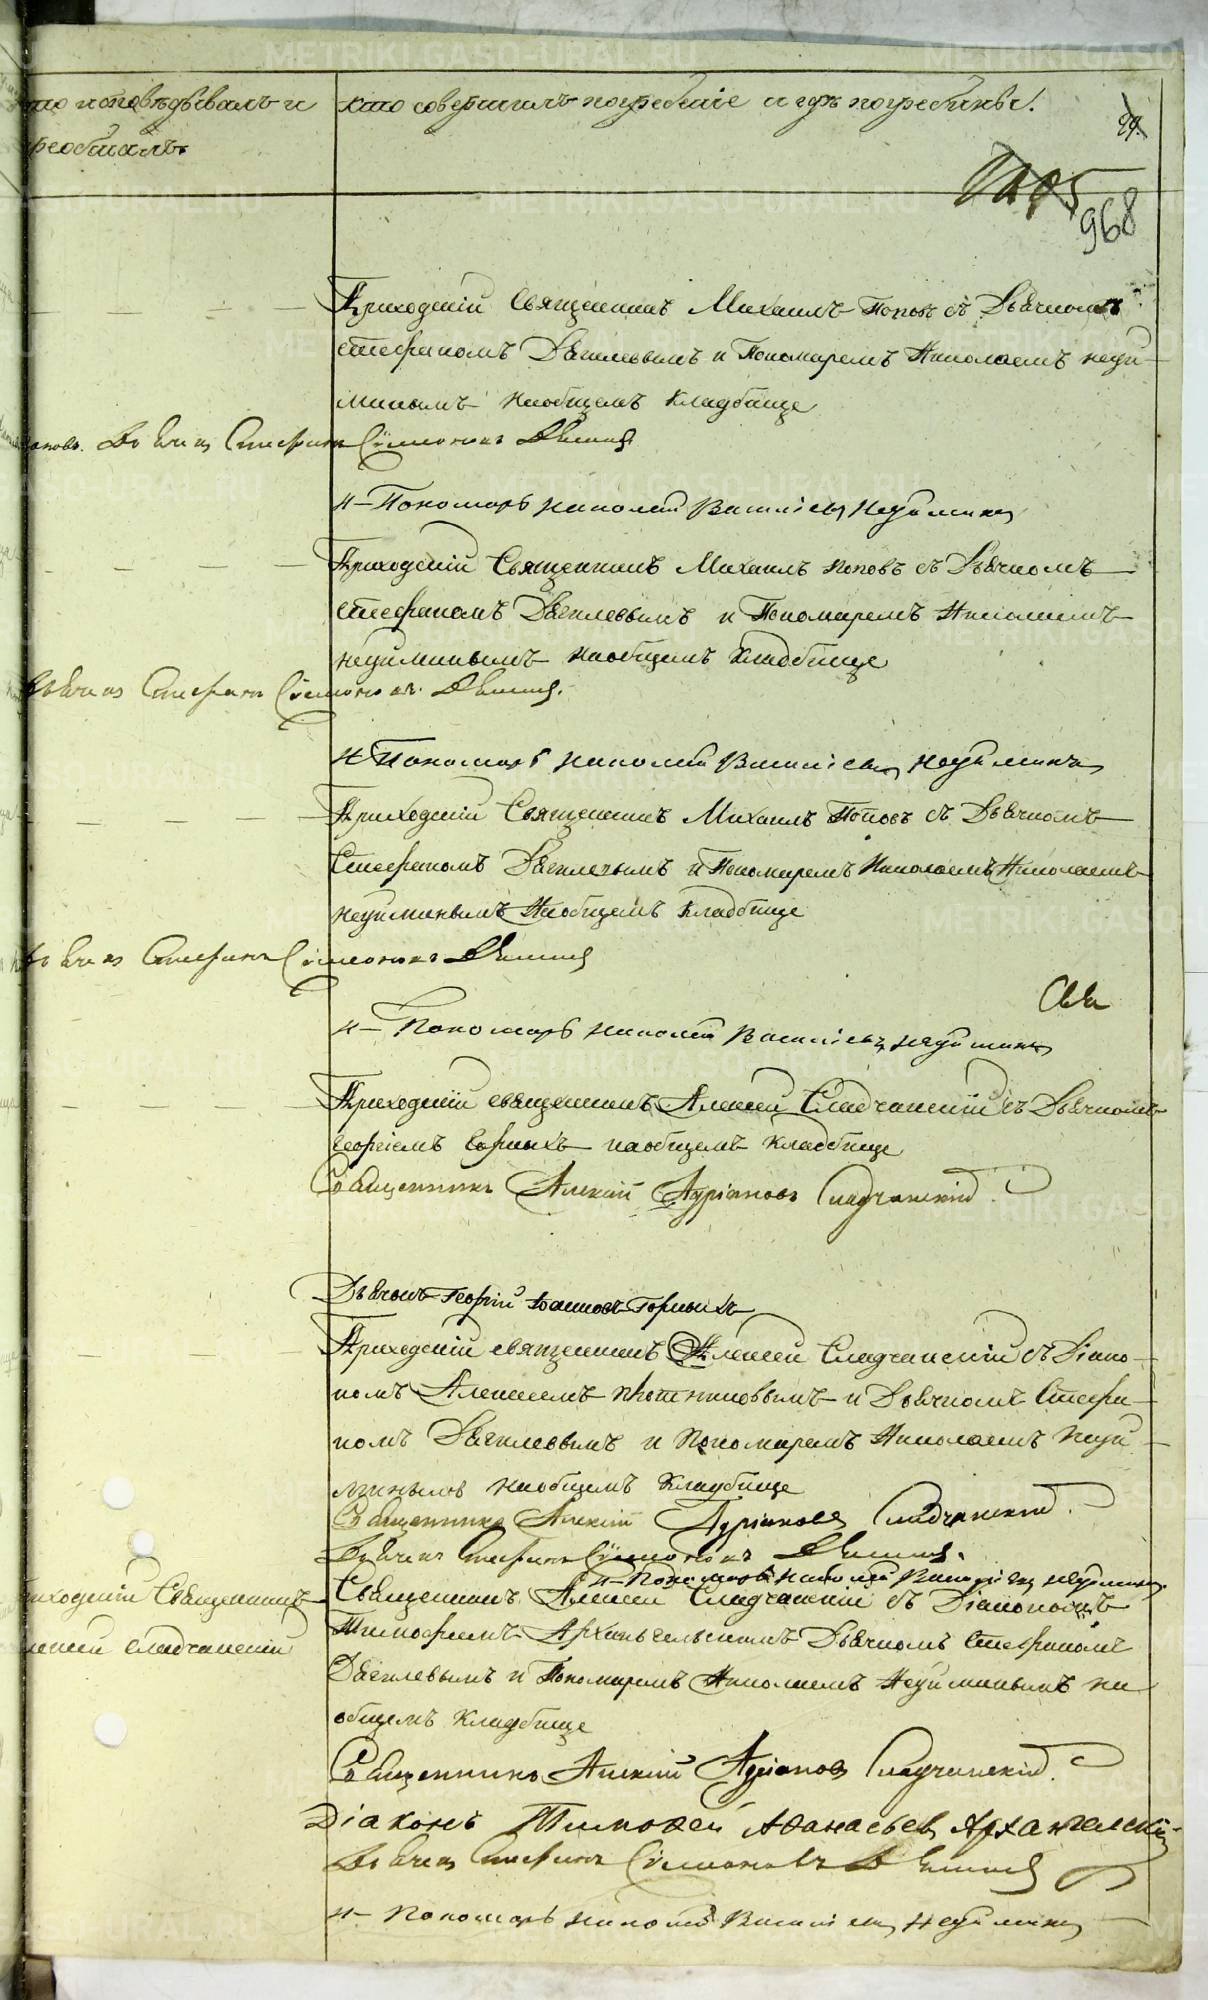 кто исповѣдывалъ и
кто совершилъ погребеніе и гдѣ погребены.
968
Приходскій Священникъ Михаилъ Поповъ съ Дьячкомъ
Стефаномъ и Пономаремъ Николаемъ Неуй-
минымъ на общемъ Кладбище
Дьячекъ Стефанъ Симеоновъ
и Пономарь Николай Васильевъ Неуйминъ
Приходскій Священникъ Михаилъ Поповъ съ Дьячкомъ
Стефаномъ и Пономаремъ Николаемъ
Неуйминымъ на общемъ Кладбище
Дьячекъ Стефанъ Симеоновъ
и Пономарь Николай Васильевъ Неуйминъ
Приходскій Священникъ Михаилъ Поповъ съ Дьячкомъ
Стефаномъ и Пономаремъ Николаемъ Николаемъ
Неуйминымъ на общемъ Кладбище
Дьячекъ Стефанъ Симеоновъ
и Пономарь Николай Васильевъ Неуйминъ
Приходскій священникъ Алексей Сладчанскій съ Дьячкомъ
Георгіемъ на общемъ Кладбище
Священникъ Алексій Адріановъ Сладчанскій
Дьячокъ Георгій Іоанновъ Горныхъ
Приходскій священникъ Алексей Сладчанскій съ Діако-
номъ Алексеемъ и Дьячкомъ Стефа-
номъ и Пономаремъ Николаемъ Неуй-
минымъ на общемъ Кладбище
Священникъ Алексій Адріановъ Сладчанскій
Дьячекъ Стефанъ Симеоновъ
и Пономарь Николай Васильевъ Неуйминъ
Приходскій Священникъ
Священникъ Алексей Сладчанскій съ Діакономъ
Алексей Сладчанскій
Тимофеемъ Архангельскимъ Дьячкомъ Стефаномъ
и Пономаремъ Николаемъ Неуйминымъ на
общемъ Кладбище
Священникъ Алексій Адріановъ Сладчанскій
Діаконъ Тимоѳей Аѳанасьевъ Архангельскій
Дьячекъ Стефанъ Симеоновъ
и Пономарь Николай Васильевъ Неуйминъ
METRIKI.GASO-URAL.RU